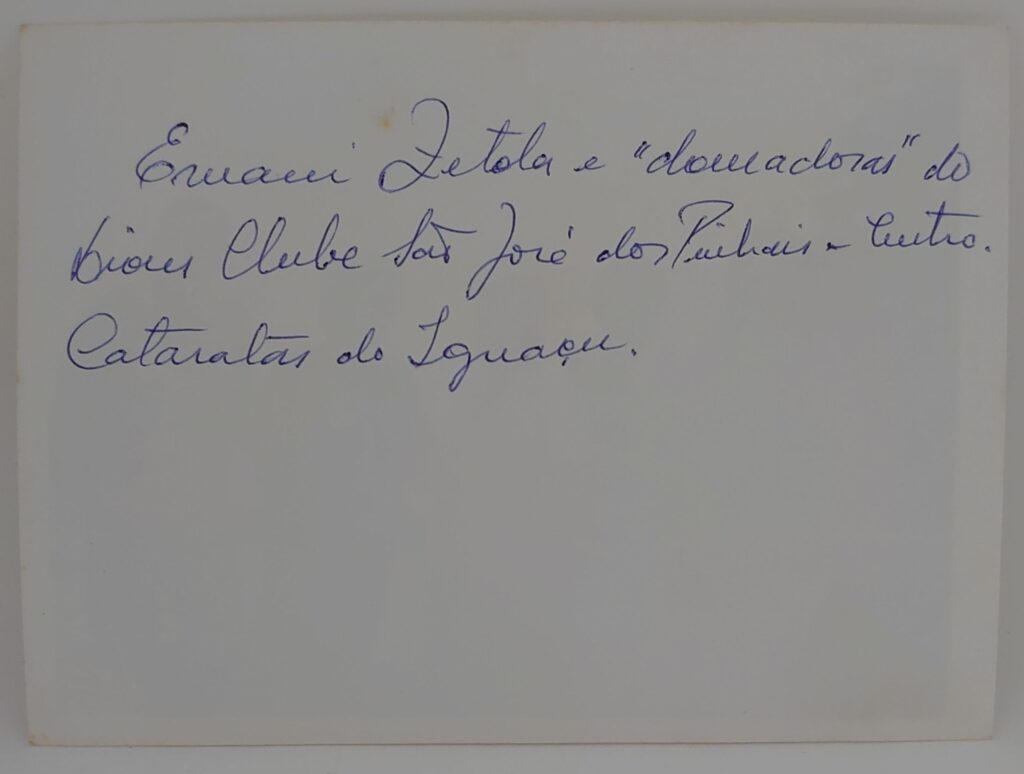 Ernani Zetola e "domadoras" do
Lions Clube São José dos Pinhais - Centro.
Cataratas do Iguaçu.